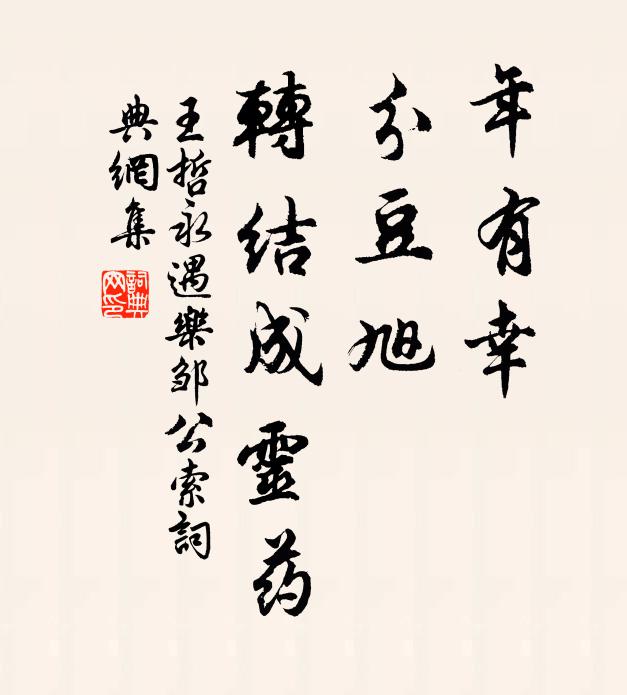 年有幸
分豆旭
轉结成靈药
王哲永遇樂邹公索詞
典網集
詞典
网印